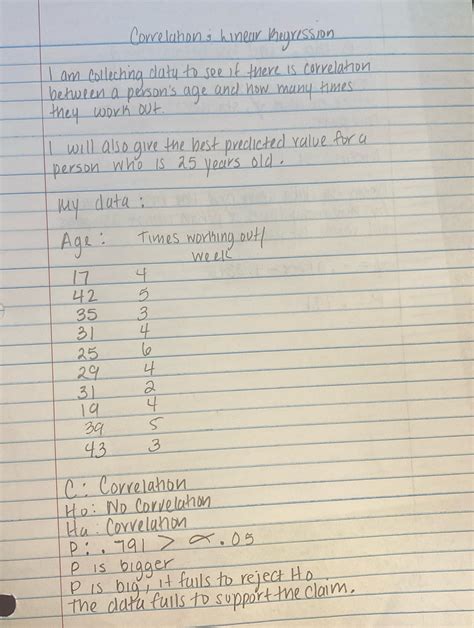 Correlation & Linear Regression
I am collecting data to see if there is correlation
between a person's age and how many times
they work out.
I will also give the best predicted value for a
person who is 25 years old.
my data:
Age: Times working out/
week
17 4
42 5
35 3
31 4
25 6
29 4
31 2
19 4
39 5
43 3
C: Correlation
Ho: No Correlation
Ha: Correlation
P: .791 > α .05
P is bigger
P is big, it fails to reject Ho
The data fails to support the claim.